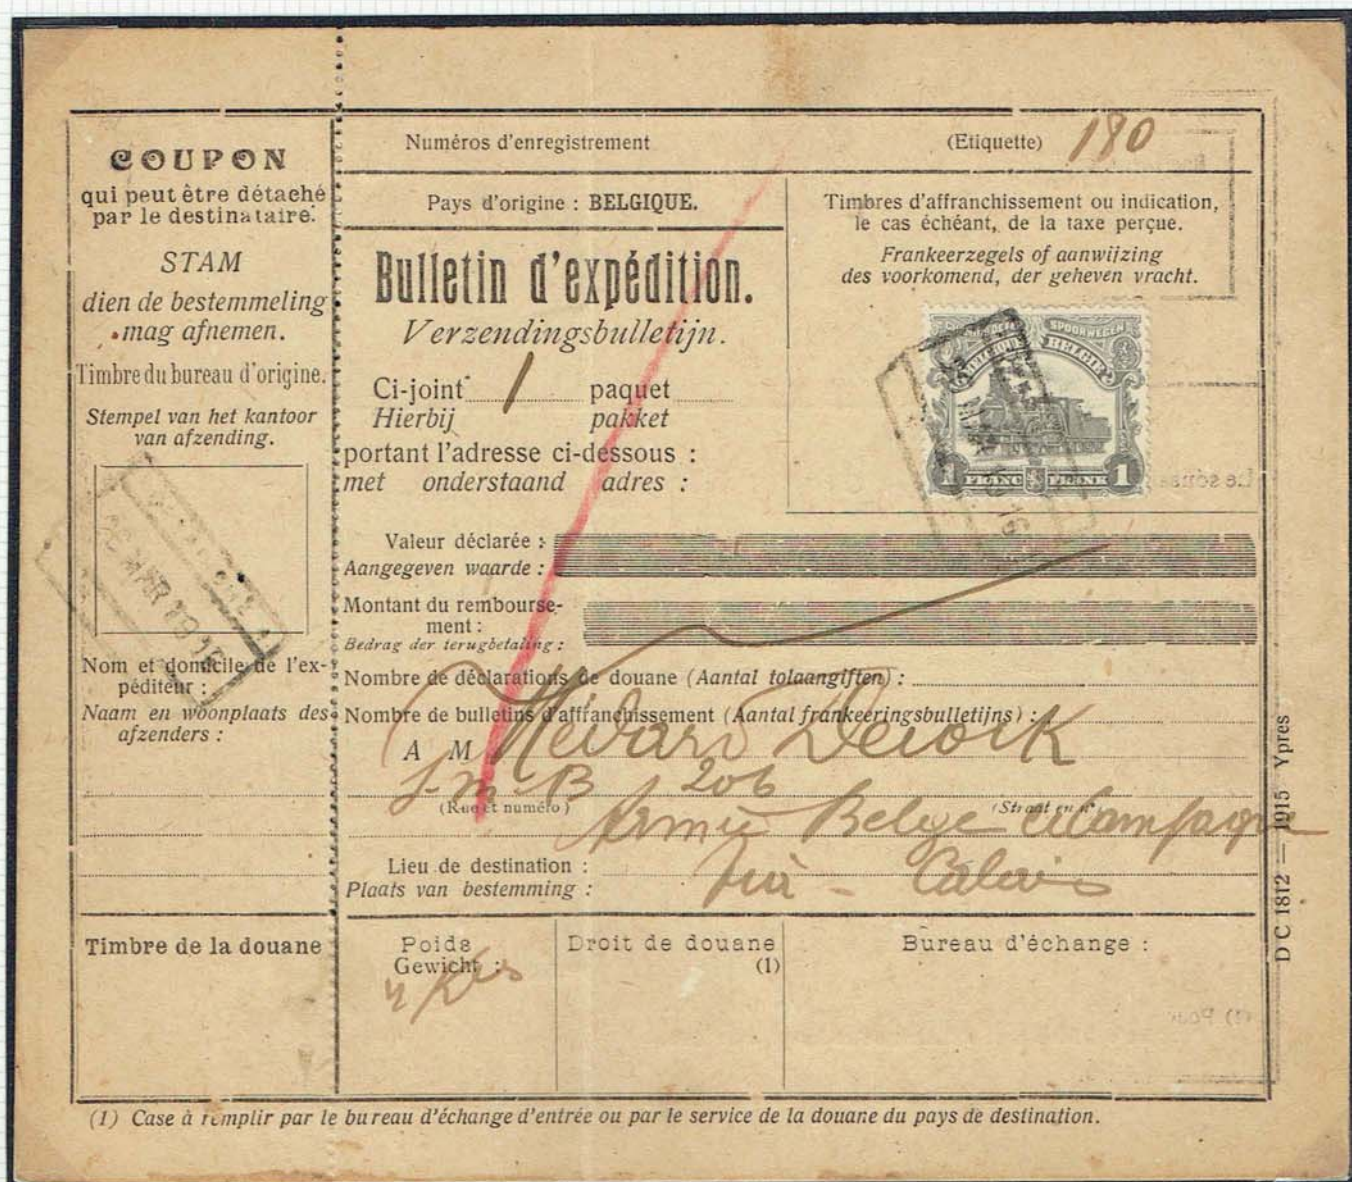 COUPON
qui peut être détaché
par le destinataire.
STAM
dien de bestemmeling
mag afnemen.
Timbre du bureau d'origine.
Stempel van het kantoor
van afzending.
MAR 19
Nom et domicile de l'ex-
péditeur :
Naam en woonplaats des
afzenders :
Timbre de la douane
Numéros d'enregistrement
(Etiquette) 180
Pays d'origine : BELGIQUE.
Bulletin d'expédition.
Verzendingsbulletijn.
Ci-joint 1 paquet
Hierbij pakket
portant l'adresse ci-dessous :
met onderstaand adres :
Timbres d'affranchissement ou indication,
le cas échéant, de la taxe perçue.
Frankeerzegels of aanwijzing
des voorkomend, der geheven vracht.
SPOORWEGEN
BELGIQUE BELGIE
1 FRANC FRANK 1
16
Valeur déclarée :
Aangegeven waarde :
Montant du rembourse-
ment :
Bedrag der terugbetaling :
Nombre de déclarations de douane (Aantal tolaangiften) :
Nombre de bulletins d'affranchissement (Aantal frankeeringsbulletijns) :
A M Médard
B 206
(Rue et numéro) (Straat en n°
Armée Belge Campagne
Lieu de destination :
Calais
Plaats van bestemming :
Poids
Gewicht :
Droit de douane
(1)
Bureau d'échange :
D C 1812 — 1915 Ypres
(1) Case à remplir par le bureau d'échange d'entrée ou par le service de la douane du pays de destination.